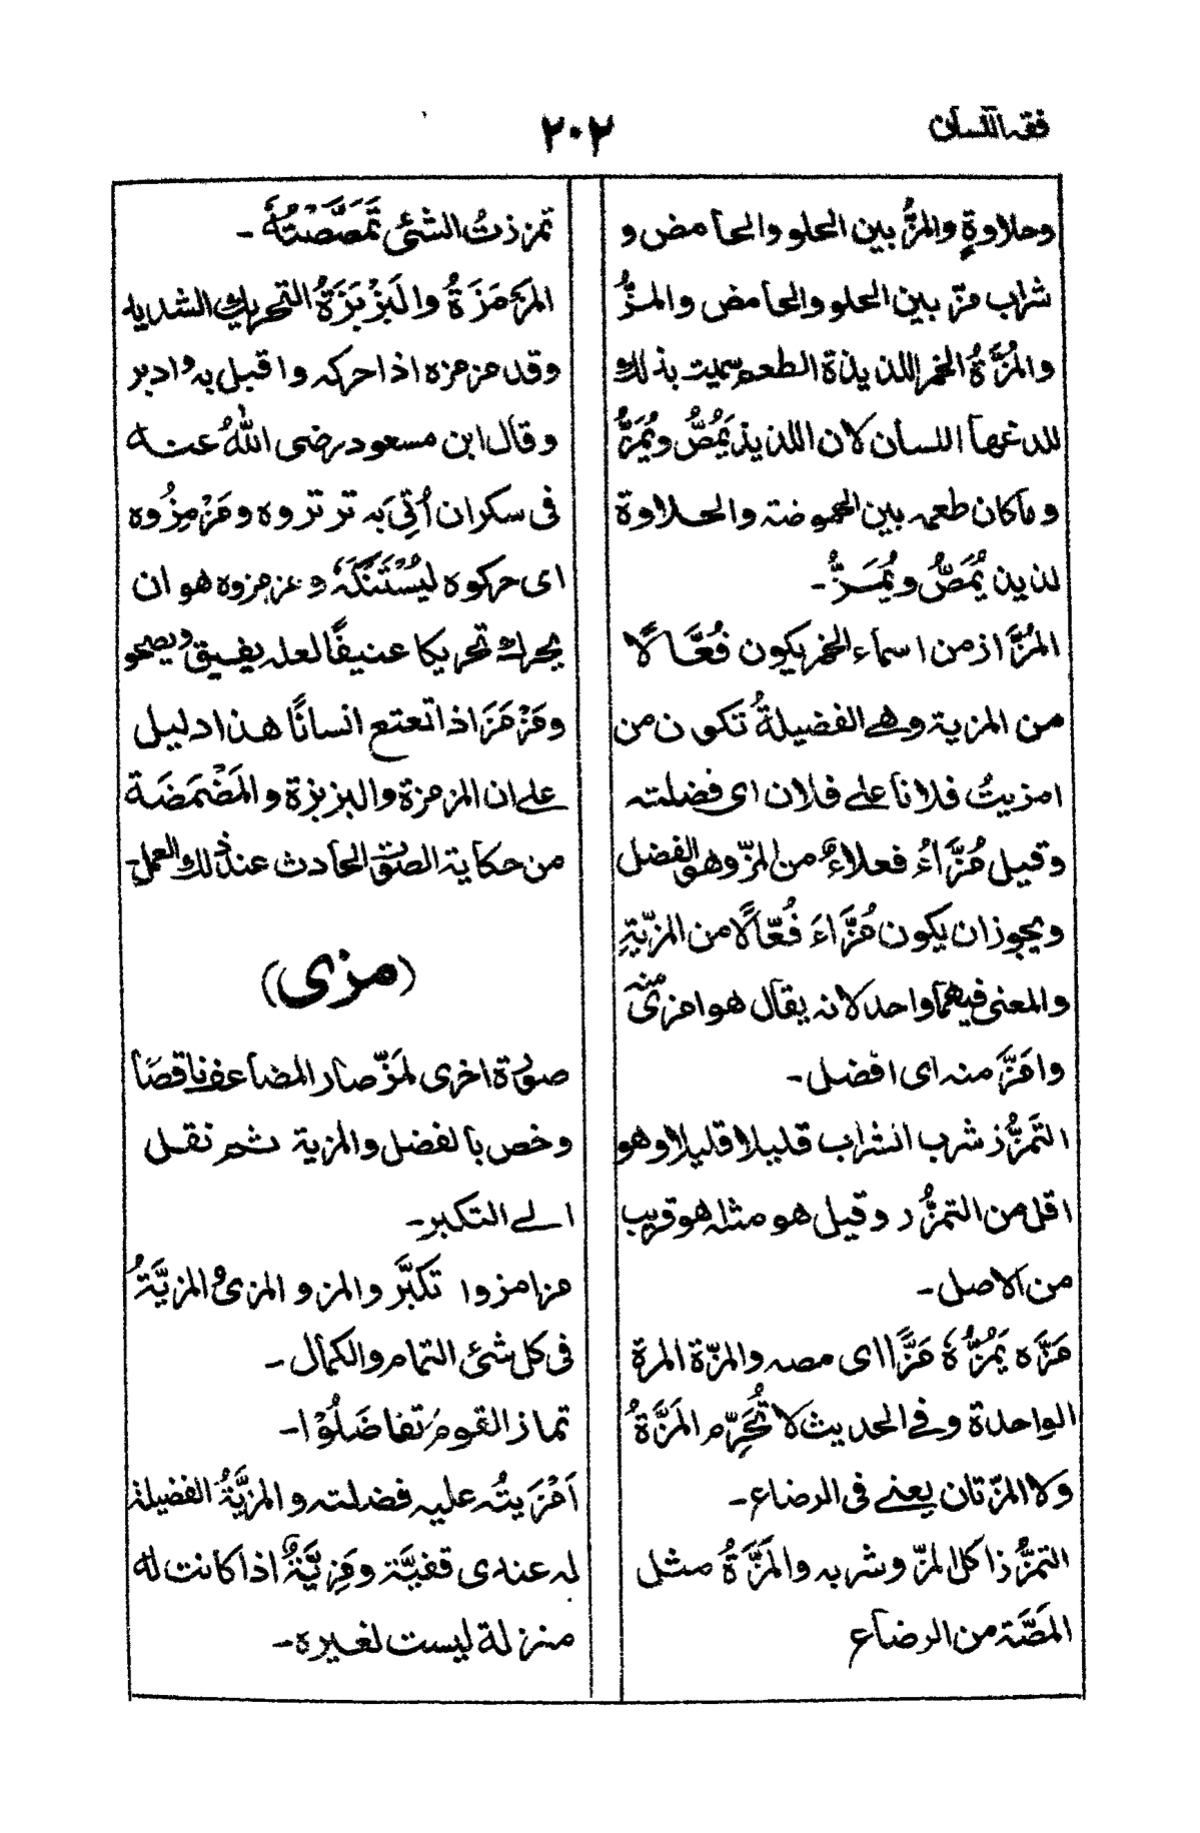 فقه اللسان
٢٠٢
وحلاوةٍ والمزُّ بين الحلو والحامض و
شراب مزّ بين الحلو والحامض والمزُّ
والمُزَّةُ الخمر اللذيذة الطعم سميت بذلك
للدغها اللسان لان اللذيذ يَمُصُّ ويُمَزُّ
وماكان طعمه بين الحموضة والحلاوة
لذيذ يُمَصُّ ويُمَزُّ۔
المُزَّاز من اسماء الخمر يكون فُعَّالًا
من المزية وهي الفضيلةُ تكون من
امزيتُ فلانا على فلان اى فضلته
وقيل مُزَّاءُ فعلاءٌ من المزّ وهو الفضل
ويجوز ان يكون مُزَّاءَ فُعّالًا من المزّيّةِ
والمعنى فيهما واحد لانه يقال هو امزىٰ منه
وامَزَّ منه اى افضل۔
التَمزُّز شرب الشراب قليلا قليلا وهو
اقل من التمزُّر وقيل هو مثله هو قريب
من الاصل۔
مَزَّه يَمُزُّهٗ مَزًّا اى مصه والمزّة المرة
الواحدة وفي الحديث لا تُحَرِّم المَزَّةُ
ولا المزّتان يعنى فى الرضاع۔
التمزُّز اكل المزّ وشربه والمَزَّةُ مثل
المَصَّة من الرضاع
تمززتُ الشئى تَمَصَّصْتُهٗ۔
المَزْمَزَةُ والبَزْبَزَةُ التحريك الشديد
وقد مزمزه اذا حركه واقبل به وادبر
وقال ابن مسعود رضى اللهُ عنه
فى سكران اُتِيَ به ترتروه ومَزْمِزُوه
اى حركوه ليُسْتَنْكَهَ ومزمزوه هو ان
يحرك تحريكا عنيفًا لعله يفيق ويصحو
ومَزْمَزَ اذا تعتع انسانًا هذا دليل
على ان المزمزة والبزبزة والمَضْمَضَة
من حكاية الصوت الحادث عند ذلك العمل۔
(مزى)
صورة اخرى لمَزّ صار المضاعف ناقصًا
وخص بالفضل والمزية ثم نقل
الى التكبر۔
مزا مزوا تكبَّر والمزو والمزىُ والمزيَّةُ
فى كل شئى التمام والكمال۔
تماز القومُ تفاضَلُوْا۔
اَمْزَيتُه عليه فضلته والمزيَّةُ الفضيلة
له عندى قفيَّة ومَزِيَّةٌ اذا كانت له
منزلة ليست لغيره۔